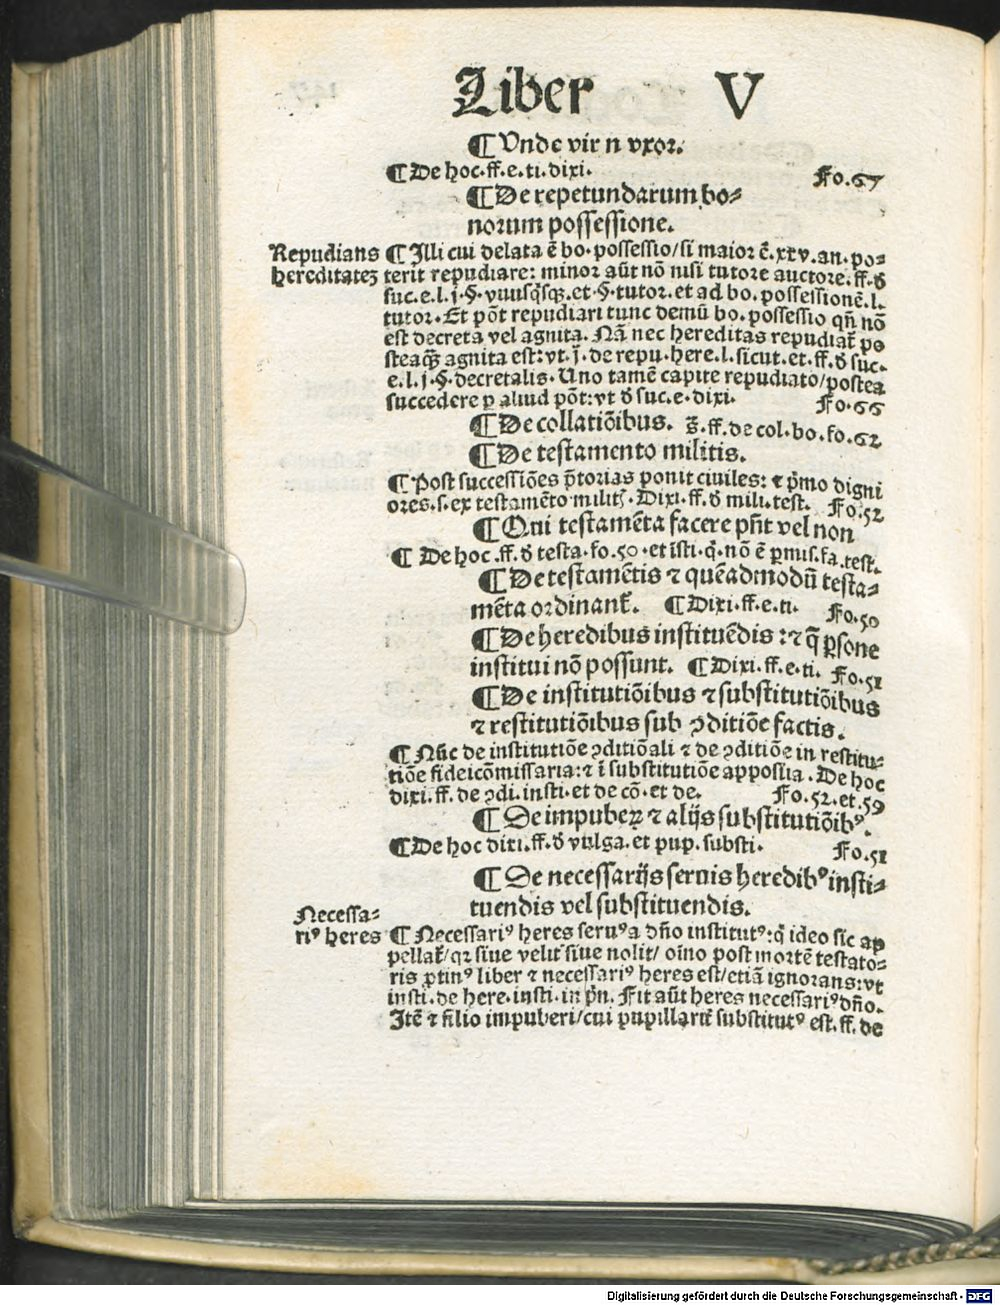 Liber V
¶ Vnde vir ⁊ vxor.
¶ De hoc.ff.e.ti.dixi. Fo.67
¶ De repetundarum bo-
norum possessione.
Repudians
hereditatez
¶ Illi cui delata ē bo.possessio/si maior ē.xxv.an.po-
terit repudiare: minor aūt nō nisi tutore auctore.ff.ď
suc.e.l.j.§.vnusq̄sqꝫ.et.§.tutor.et ad bo.possessionē.l.
tutor. Et pōt repudiari tunc demū bo.possessio qñ nō
est decreta vel agnita. Nā nec hereditas repudiat̄ po
steaqꝫ agnita est: vt.j.de repu.here.l.sicut.et.ff.ď suc.
e.l.j.§.decretalis. Uno tamē capite repudiato/postea
succedere ꝑ aliud pōt: vt ď suc.e.dixi. Fo.66
¶ De collatiōibus. s̄.ff.de col.bo.fo.62
¶ De testamento militis.
¶ Post successiōes p̄torias ponit ciuiles: ⁊ p̄mo digni
ores.s.ex testamēto milit̄. Dixi.ff.ď mili.test. Fo.52
¶ Qui testamēta facere pn̄t vel non
¶ De hoc.ff.ď testa.fo.50.et isti.q̄.nō ē ꝑmis.fa.test.
¶ De testamētis ⁊ quēadmodū testa-
mēta ordinant̄. ¶ Dixi.ff.e.ti. Fo.50
¶ De heredibus instituēdis: ⁊ q̄ ꝑsone
institui nō possunt. ¶ Dixi.ff.e.ti. Fo.51
¶ De institutiōibus ⁊ substitutiōibus
⁊ restitutiōibus sub ꝯditiōe factis.
¶ Nūc de institutiōe ꝯditiōali ⁊ de ꝯditiōe in restitu-
tiōe fideicōmissaria: ⁊ ī substitutiōe apposita. De hoc
dixi.ff.de ꝯdi.insti.et de cō.et de. Fo.52.et.59
¶ De impubeꝝ ⁊ alijs substitutiōibꝰ.
¶ De hoc dixi.ff.ď vulga.et pup.substi. Fo.51
¶ De necessarijs seruis heredibꝰ insti-
tuendis vel substituendis.
Necessa-
riꝰ heres
¶ Necessariꝰ heres seruꝰ a dn̄o institutꝰ: q̄ ideo sic ap
pellat̄/qꝛ siue velit siue nolit/ oīno post mortē testato-
ris ꝓtinꝰ liber ⁊ necessariꝰ heres est/etiā ignorans: vt
insti.de here.insti.in pn̄. Fit aūt heres necessariꝰ dn̄o.
Itē ⁊ filio impuberi/cui pupillarit̄ substitutꝰ est.ff.de
Digitalisierung gefördert durch die Deutsche Forschungsgemeinschaft - DFG